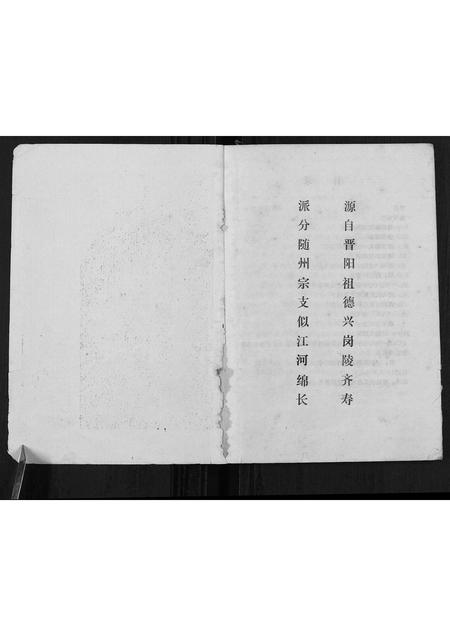 源自晋阳祖德兴岗陵齐寿
派分随州宗支似江河绵长